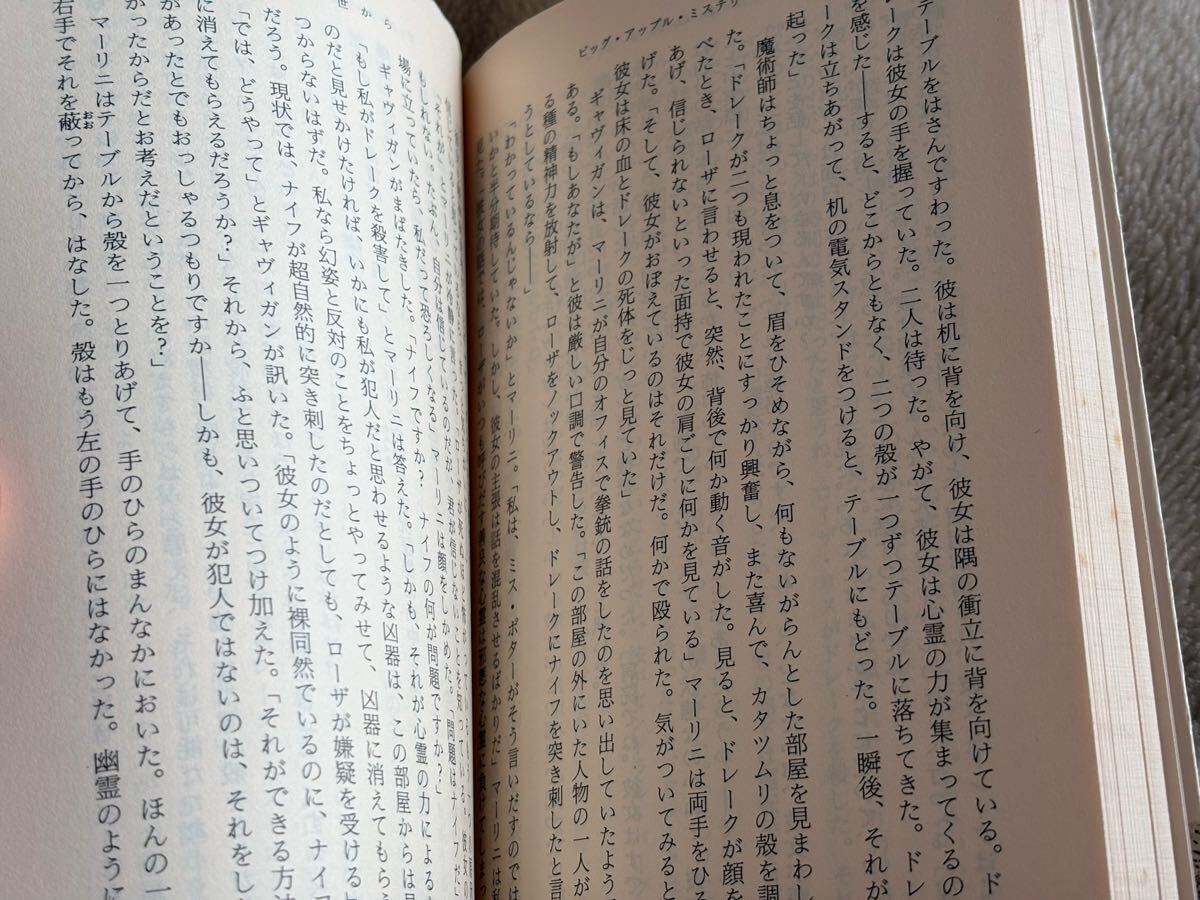 ビッグ・アップル・ミステリ
テーブルをはさんですわった。彼は机に背を向け、彼女は隅の衝立に背を向けている。ド
ークは彼女の手を握っていた。二人は待った。やがて、彼女は心霊の力が集まってくるの
を感じた――すると、どこからともなく、二つの殻が一つずつテーブルに落ちてきた。ドレ
ークは立ちあがって、机の電気スタンドをつけると、テーブルにもどった。一瞬後、それが
起った」
魔術師はちょっと息をついて、眉をひそめながら、何もないがらんとした部屋を見まわし
た。「ドレークが二つも現われたことにすっかり興奮し、また喜んで、カタツムリの殻を調
べたとき、ローザに言わせると、突然、背後で何か動く音がした。見ると、ドレークが顔を
あげ、信じられないといった面持で彼女の肩ごしに何かを見ている」マーリニは両手をひろ
げた。「そして、彼女がおぼえているのはそれだけだ。何かで殴られた。気がついてみると
彼女は床の血とドレークの死体をじっと見ていた」
ギャヴィガンは、マーリニが自分のオフィスで拳銃の話をしたのを思い出していたよう
ある。「もしあなたが」と彼は厳しい口調で警告した。「この部屋の外にいた人物の一人が
る種の精神力を放射して、ローザをノックアウトし、ドレークにナイフを突き刺したと言
うとしているなら――」
「わかっているんじゃないか」とマーリニ。「私は、ミス・ポターがそう言いだすのでは
いかと半分期待していた。しかし、彼女の主張は話を混乱させるばかりだ」マーリニは私
世から
場に立っていたら、私だって恐ろしくなる」マーリニは顔をしかめた。「問題はナイフだ」
ギャヴィガンがまばたきした。「ナイフですか？　ナイフの何が問題ですか？」
「もし私がドレークを殺害して」とマーリニは答えた。「しかも、それが心霊の力による
のだと見せかけたければ、いかにも私が犯人だと思わせるような凶器は、この部屋からは見
つからないはずだ。私なら幻姿と反対のことをちょっとやってみせて、凶器に消えてもらえ
だろう。現状では、ナイフが超自然的に突き刺したのだとしても、ローザが嫌疑を受ける」
「では、どうやって」とギャヴィガンが訊いた。「彼女のように裸同然でいるのに、ナイ
に消えてもらえるだろうか？」それから、ふと思いついてつけ加えた。「それができる方法
があったとでもおっしゃるつもりですか――しかも、彼女が犯人ではないのは、それをし
かったからだとお考えだということを？」
マーリニはテーブルから殻を一つとりあげて、手のひらのまんなかにおいた。ほんの一
右手でそれを蔽おおってから、はなした。殻はもう左の手のひらにはなかった。幽霊のように